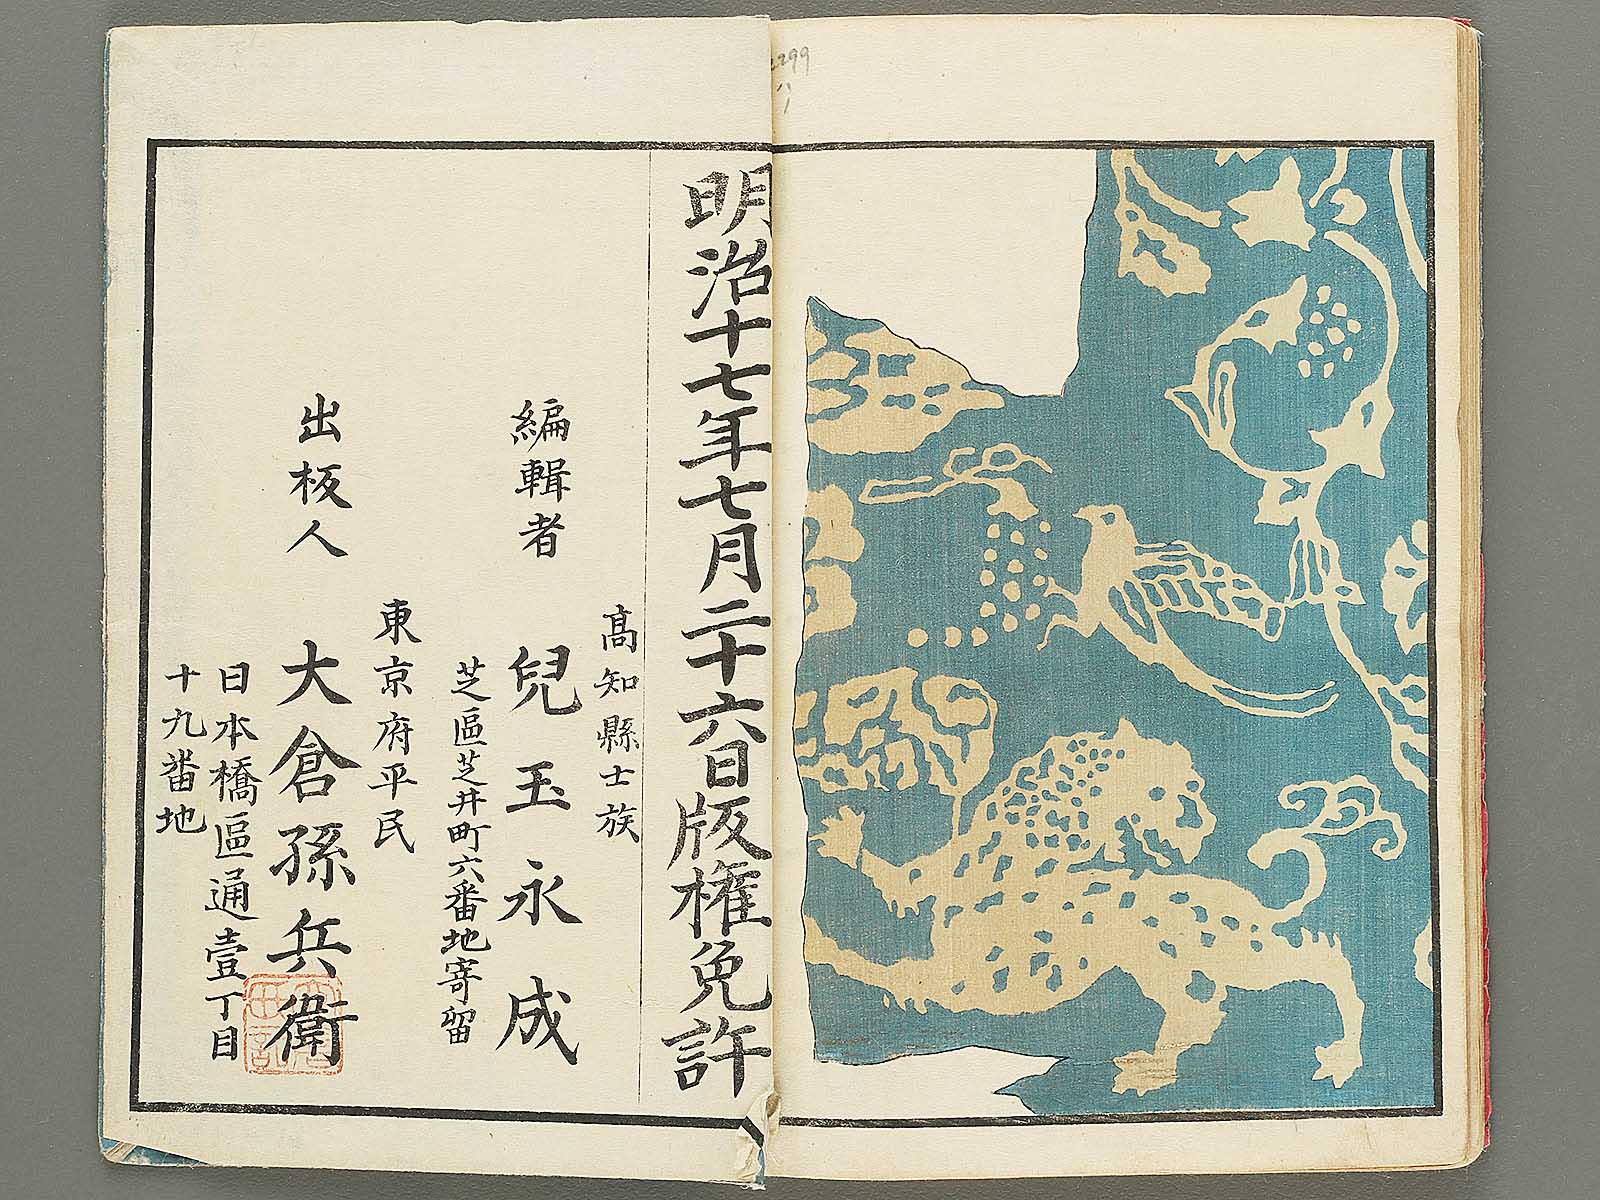 明治十七年七月二十六日版權免許
高知縣士族
編輯者 兒玉永成
芝區芝井町六番地寄留
東京府平民
出板人 大倉孫兵衞
日本橋區通壹丁目
十九番地